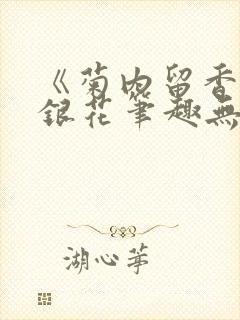 《菊内留香
銀花筆趣無
湖心茡